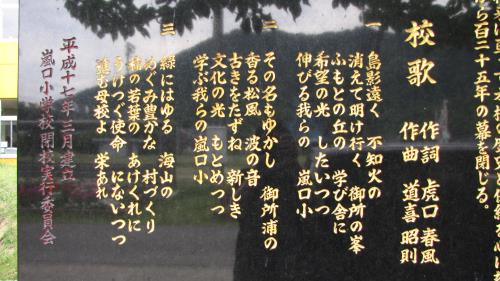 ら百二十五年の幕を閉じる。
校歌
作詞 虎口 春風
作曲 道喜 昭則
一 島影遠く 不知火の
消えて明け行く 御所の峯
ふもとの丘の 学び舎に
希望の光 したいつつ
伸びる我らの 嵐口小
二 その名もゆかし 御所浦の
香る松風 波の音
古きをたずね 新しき
文化の光 もとめつつ
学ぶ我らの嵐口小
三 緑にはゆる 海山の
めぐみ豊かな 村づくり
龍の若葉の あけくれに
うけつぐ使命 にないつつ
母校よ 栄あれ
平成十七年三月建立
嵐口小学校閉校実行委員会